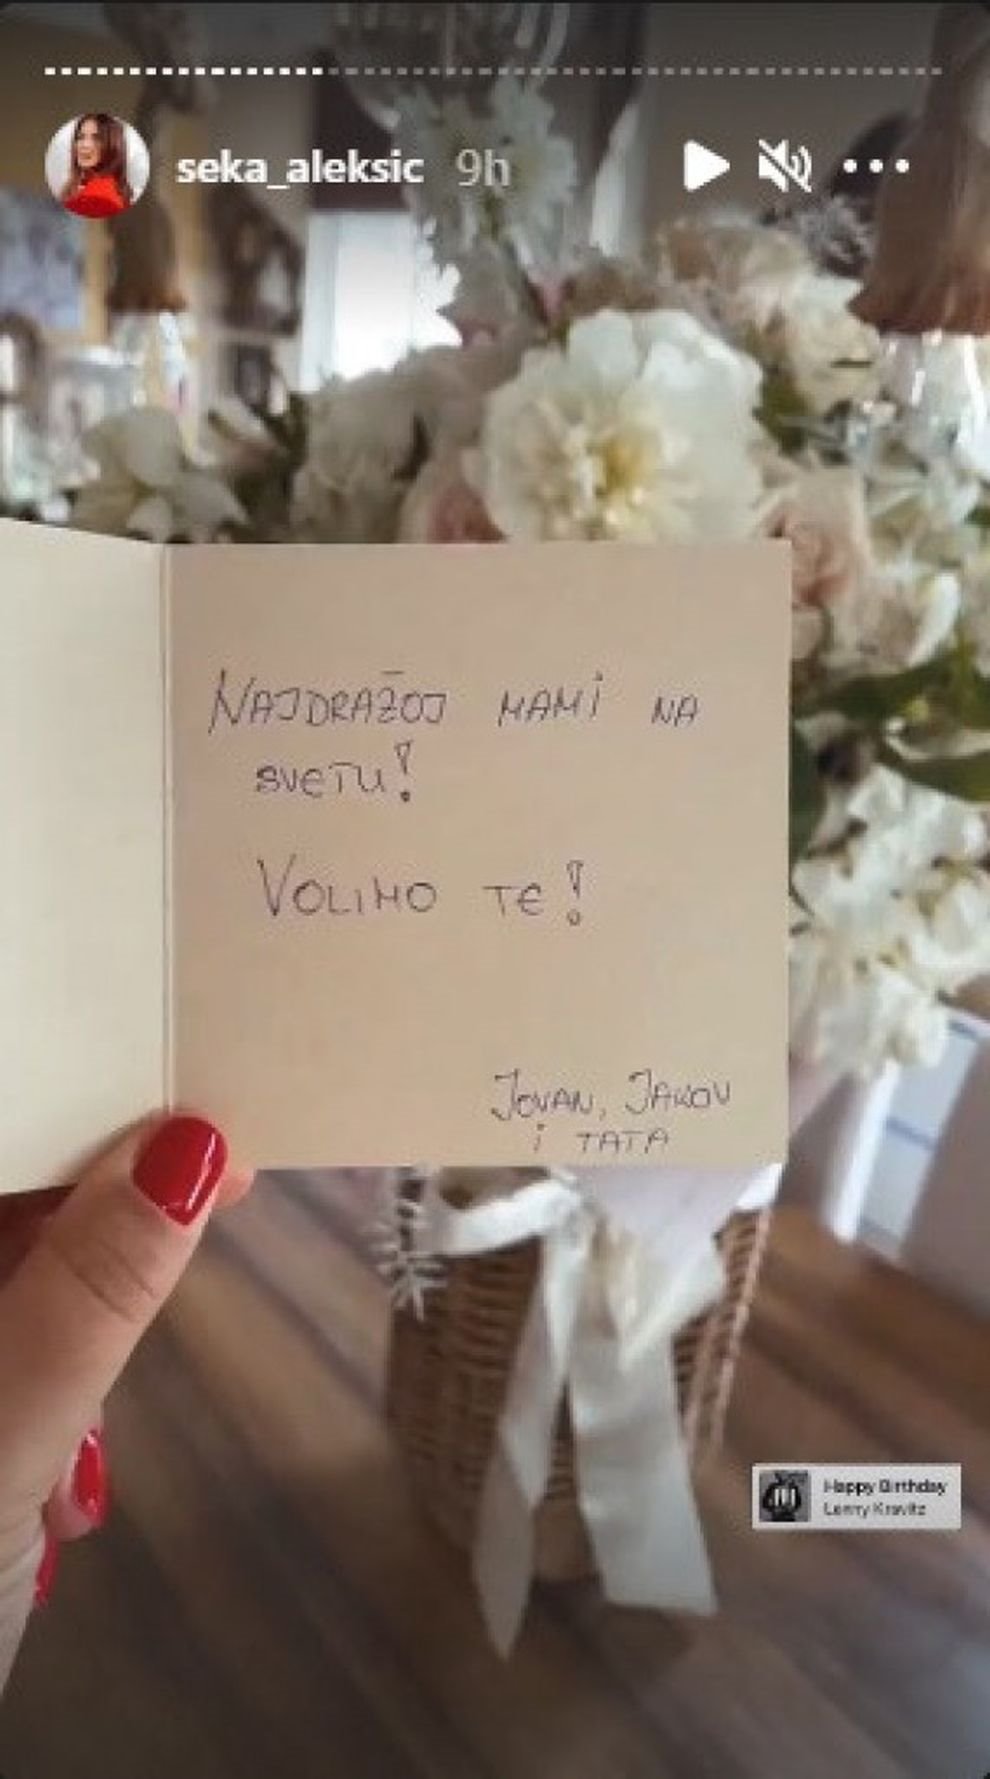 seka_aleksic 9h
NAJDRAŽOJ MAMi NA
SVETU!
VOLIMO TE!
JOVAN, JAKOV
i TATA
Happy Birthday
Lenny Kravitz